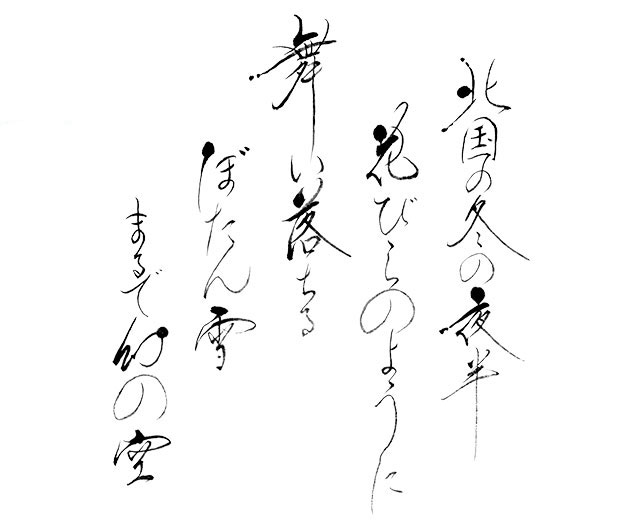 北国の冬の夜半
花びらのように
舞い落ちる
ぼたん雪
まるで幻の空